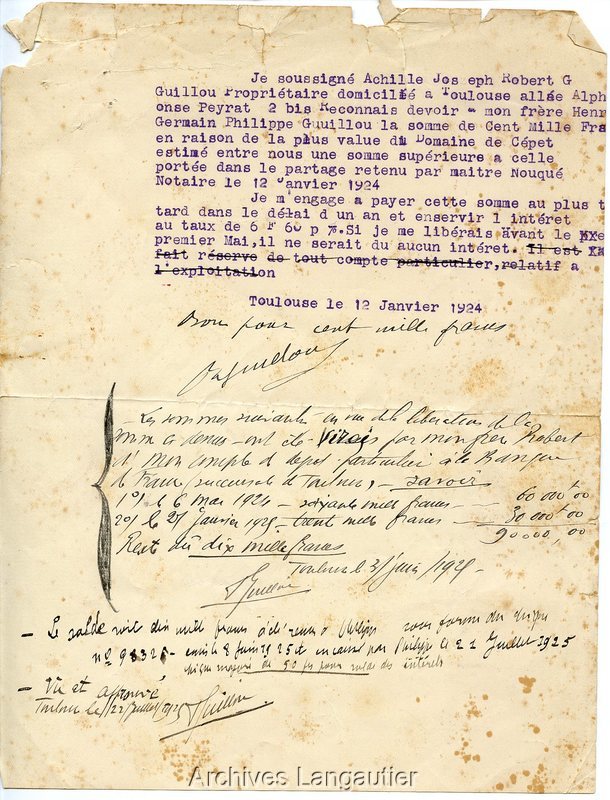 Je soussigné Achille Jos eph Robert G
Guillou Propriétaire domicilié a Toulouse allée Alph
onse Peyrat 2 bis Reconnais devoir - mon frère Henr
Germain Philippe Guuillou la somme de Cent Mille Fra
en raison de la plus value du Domaine de Cépet
estimé entre nous une somme supérieure a celle
portée dans le partage retenu par maitre Nouqué
Notaire le 12 Janvier 1924
Je m'engage a payer cette somme au plus t
tard dans le délai d un an et enservir l intéret
au taux de 6 F 60 p %.Si je me libérais Avant le
premier Mai,il ne serait du aucun intéret. Il est
fait réserve de tout compte particulier,relatif a
l'exploitation
Toulouse le 12 Janvier 1924
Bon pour cent mille francs
Les sommes suivantes en vue de la libération de la
somme ci dessus - ont été virées par mon frère Robert
à mon compte de dépot particulier à la Banque
de France (succursale de Toulouse) - savoir
1° le 6 mai 1924 - soixante mille francs - 60 000 f 00
2° le 27 Janvier 1925 - trente mille francs - 30 000 f 00
90 000, 00
Reste dû dix mille francs
Toulouse le 3 Juin 1925
Guillou
- Le solde soit dix mille francs à Philippe sous forme du chèque
n° 98325 - émis le 8 Juin 1925 et encaissé par Philippe le 21 Juillet 1925
chèque majoré de 50 frs pour solde des intérêts
- Vu et approuvé
Toulouse le 22 Juillet 1925 Guillou
Archives Langautier